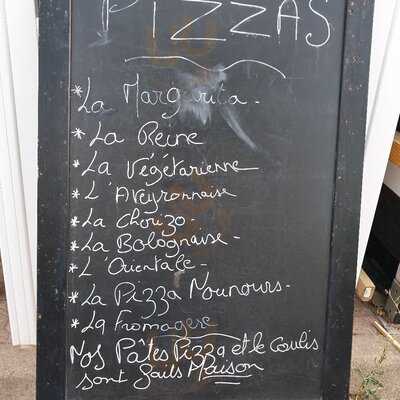 PIZZAS
* La Margarita -
* La Reine
* La Végétarienne
* L'Aveyronnaise
* La Chorizo -
* La Bolognaise -
* L'Orientale -
* La Pizza Nounours -
* La Fromagere
Nos Pâtes Pizza et le Coulis
sont faits Maison